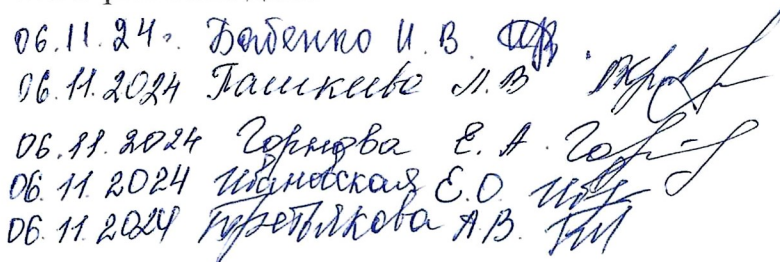 06.11.24г. Бабенко И. В.
06.11.2024 Пашкова Л. В
06.11.2024 Горнова Е. А.
06.11.2024 Ивановская Е.О.
06.11.2024 Третьякова А.В.